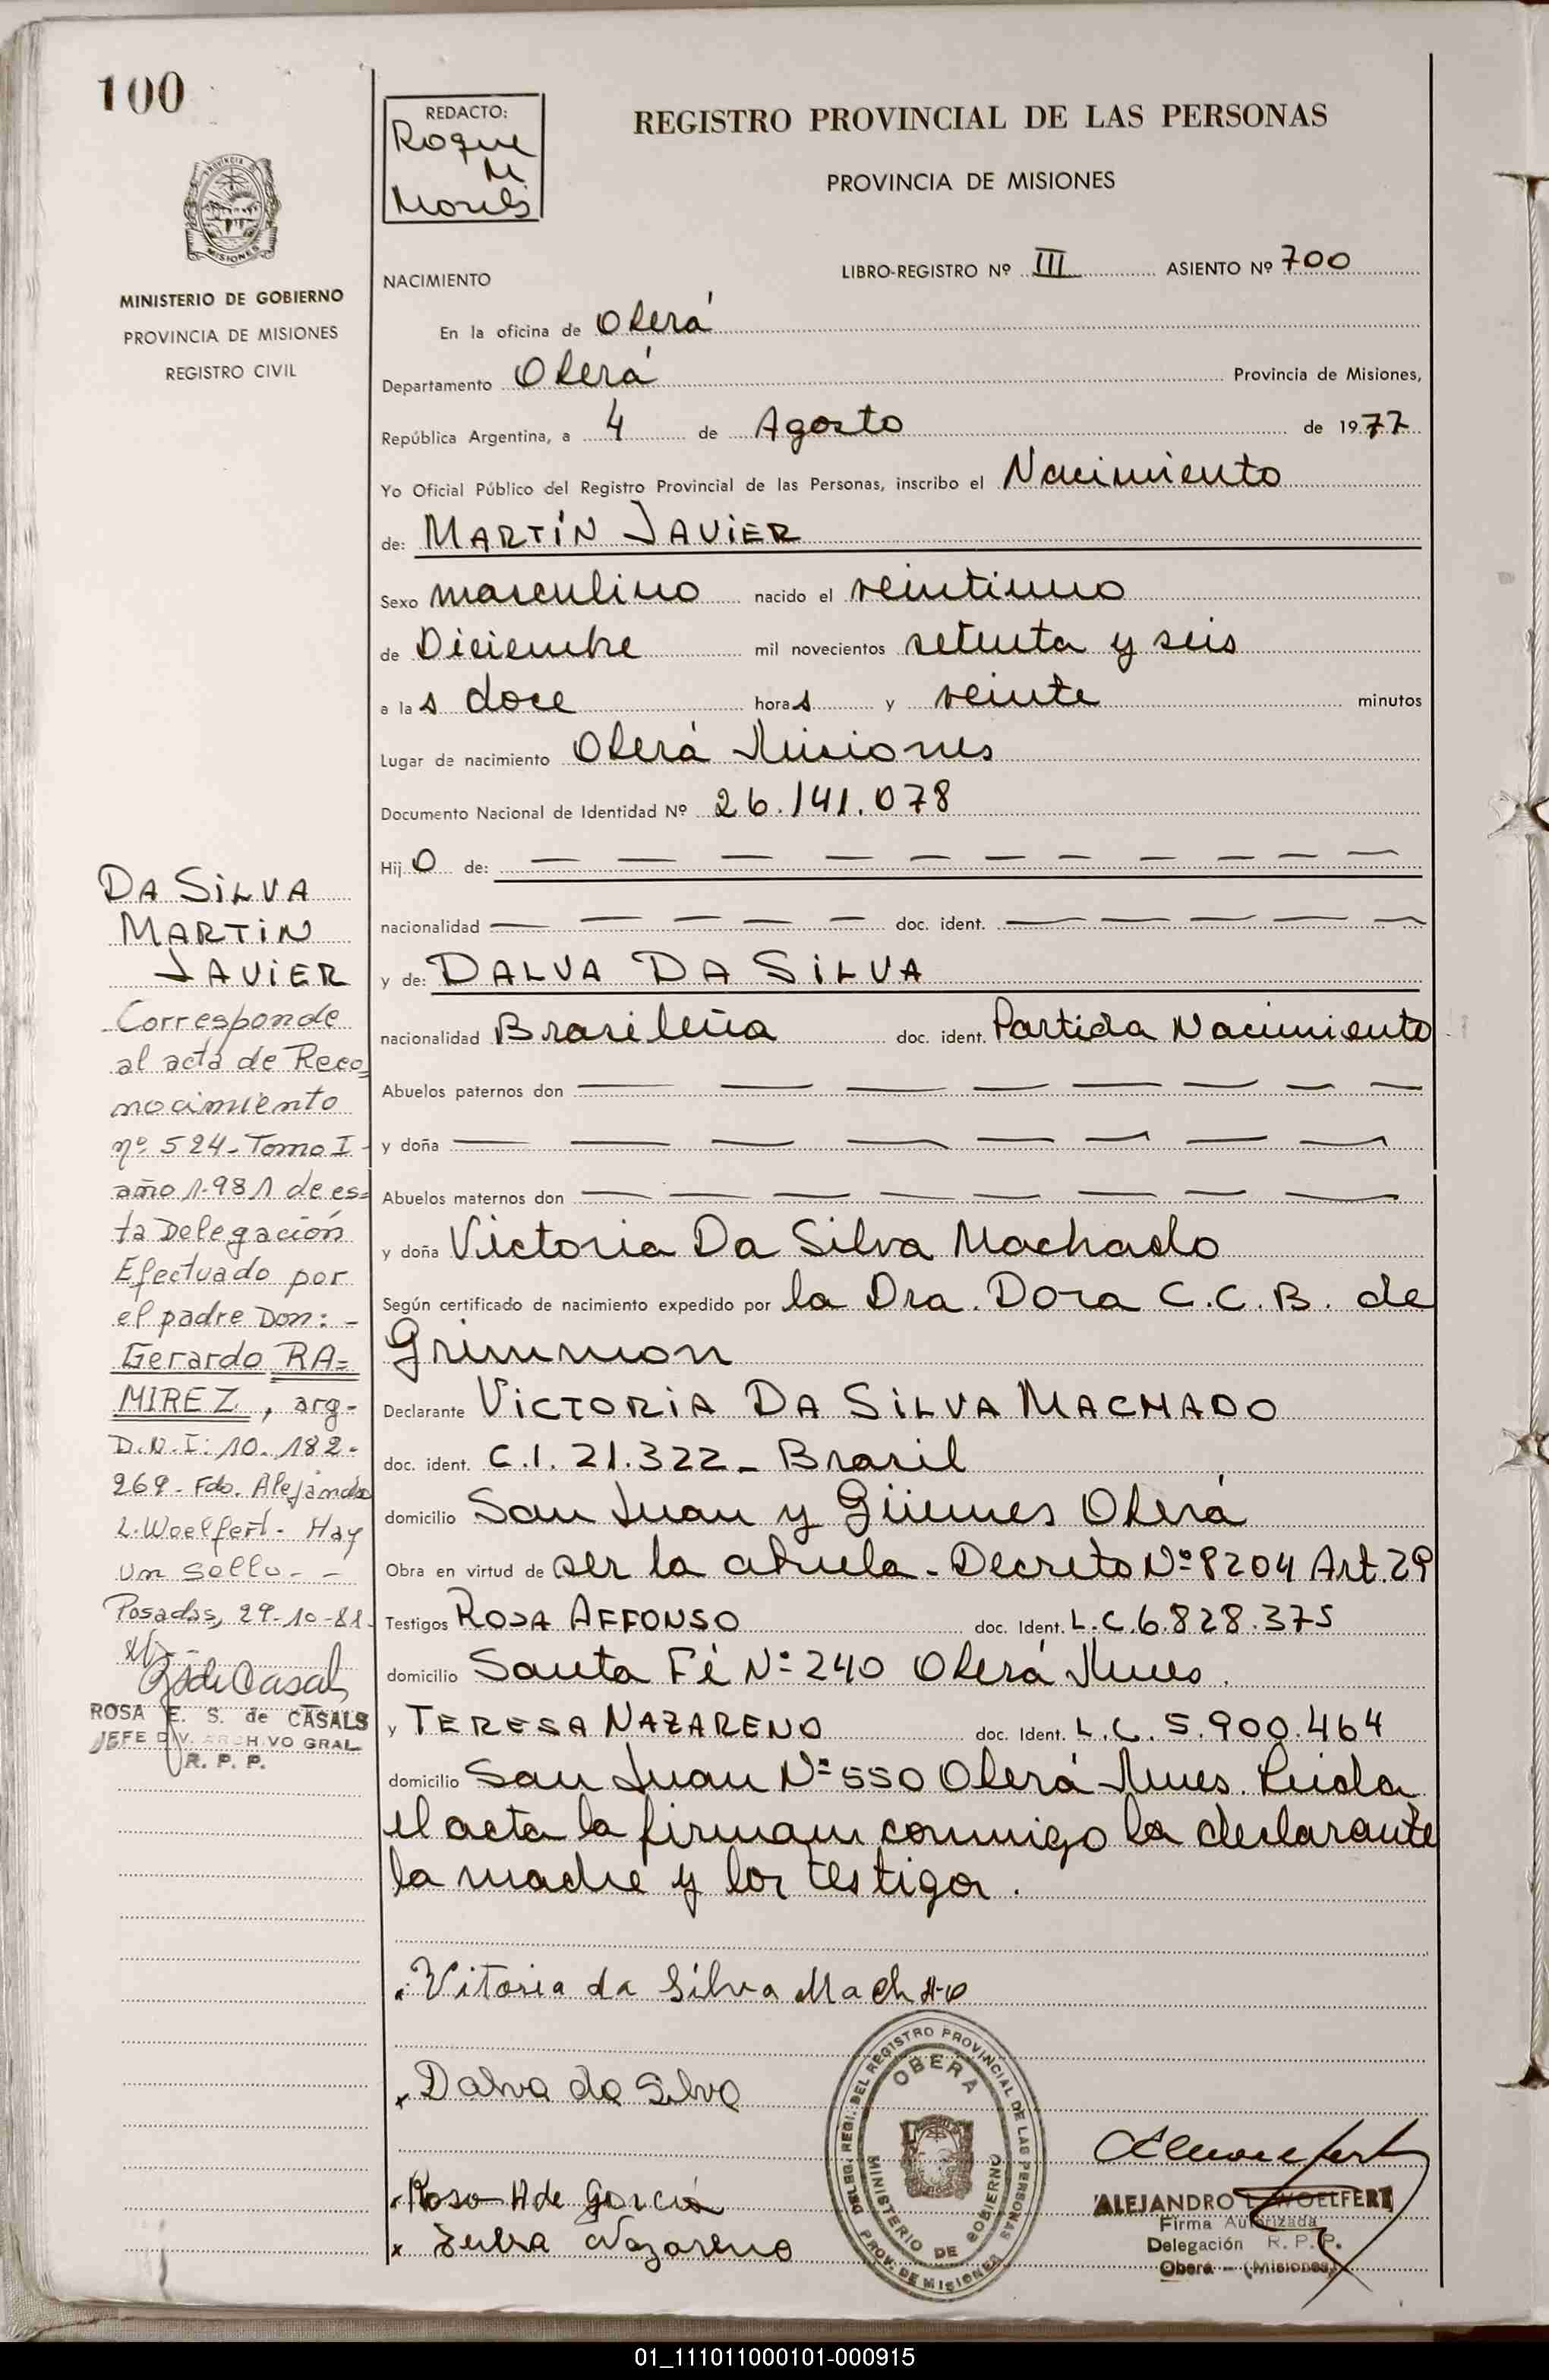 100
REDACTO:
Roque
M
REGISTRO PROVINCIAL DE LAS PERSONAS
PROVINCIA DE MISIONES
MISIONES
MINISTERIO DE GOBIERNO
PROVINCIA DE MISIONES
REGISTRO CIVIL
NACIMIENTO
LIBRO-REGISTRO Nº III ASIENTO Nº 700
En la oficina de Oberá
Departamento Oberá Provincia de Misiones,
República Argentina, a 4 de Agosto de 1977
Yo Oficial Público del Registro Provincial de las Personas, inscribo el Nacimiento
de: MARTÍN JAVIER
Sexo masculino nacido el veintiuno
de Diciembre mil novecientos setenta y seis
a las doce horas y veinte minutos
Lugar de nacimiento Oberá Misiones
Documento Nacional de Identidad Nº 26.141.078
Hijo de: — — — — — — — — — — —
nacionalidad — — — — — doc. ident. — — — — —
y de: DALVA DA SILVA
nacionalidad Brasileña doc. ident. Partida Nacimiento
Abuelos paternos don — — — — — — — —
y doña — — — — — — — —
Abuelos maternos don — — — — — — — —
y doña Victoria Da Silva Machado
Según certificado de nacimiento expedido por la Dra. Dora C.C.B. de
Grimmon
Declarante VICTORIA DA SILVA MACHADO
doc. ident. C.I. 21.322 - Brasil
domicilio San Juan y Güemes Oberá
Obra en virtud de ser la abuela - Decreto Nº 8204 Art. 29
Testigos ROSA AFFONSO doc. Ident. L.C. 6.828.375
domicilio Santa Fé Nº 240 Oberá Mnes.
y TERESA NAZARENO doc. Ident. L.C. 5.900.464
domicilio San Juan Nº 550 Oberá Mnes. Leida
el acta la firman conmigo la declarante
la madre y los testigos.
DA SILVA
MARTIN
JAVIER
Corresponde
al acta de Reco=
nocimiento
nº 524 - Tomo I -
año 1.981 de es=
ta Delegación
Efectuado por
el padre Don: -
Gerardo RA=
MIREZ, arg-
D.N.I: 10.182-
269 - Fdo. Alejandro
L. Woelfert - Hay
un sello - -
Posadas, 29-10-81
ROSA E. S. de CASALS
JEFE DIV. ARCHIVO GRAL
R. P. P.
Vitoria da Silva Machado
x Dalva da Silva
x Rosa A de Garcia
x Teresa Nazareno
DEL REGISTRO PROVINCIAL DE LAS PERSONAS
OBERA
MINISTERIO DE GOBIERNO
PROV. DE MISIONES
ALEJANDRO L. WOELFERT
Firma Autorizada
Delegación R. P. P.
Oberá - (Misiones)
01_111011000101-000915